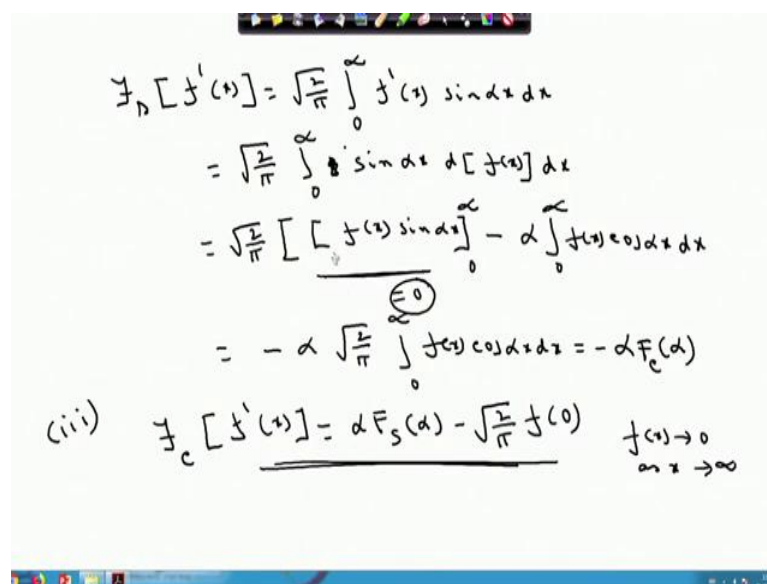 𝓕ₛ [f'(x)] = √(2/π) ∫₀^∞ f'(x) sin αx dx
= √(2/π) ∫₀^∞ sin αx d[f(x)] dx
= √(2/π) [ [f(x) sin αx]₀^∞ - α ∫₀^∞ f(x) cos αx dx
= 0
= - α √(2/π) ∫₀^∞ f(x) cos αx dx = - α F_c(α)
(iii) 𝓕_c [f'(x)] = α F_s(α) - √(2/π) f(0) f(x) → 0
as x → ∞